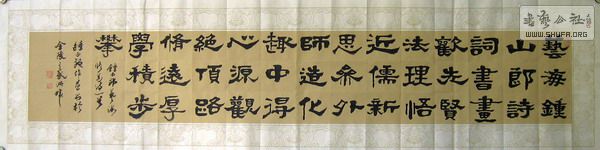 藝海鍾
山郎詩
詞書畫
歡先賢
法理悟
近儒新
思叅外
師造化
趣中得
心源觀
絕頂路
脩遠厚
學積步
攀
WWW.SHUFA.ORG